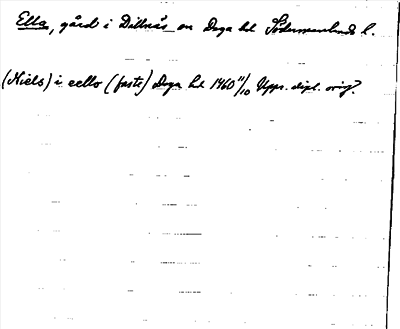 Ella, gård i Dillnäs sn Daga hd Södermanlands l.
(Niels) i eello (faste) Daga hd 1460 11/10 Upps. dipl. orig.